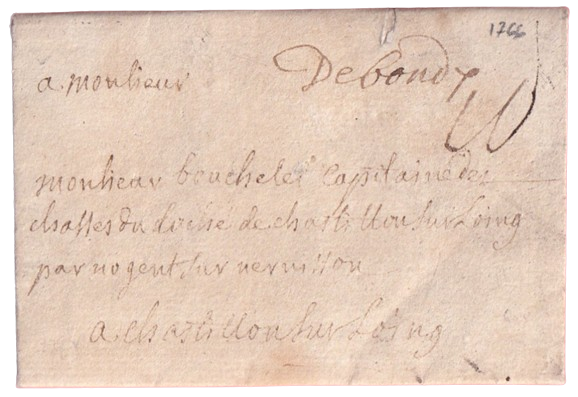 1766
Debondy
a monsieur
monsieur bouchelet capitaine des
chasses du duché de chastillon sur Loing
par nogent sur vernisson
a chastillon sur Loing